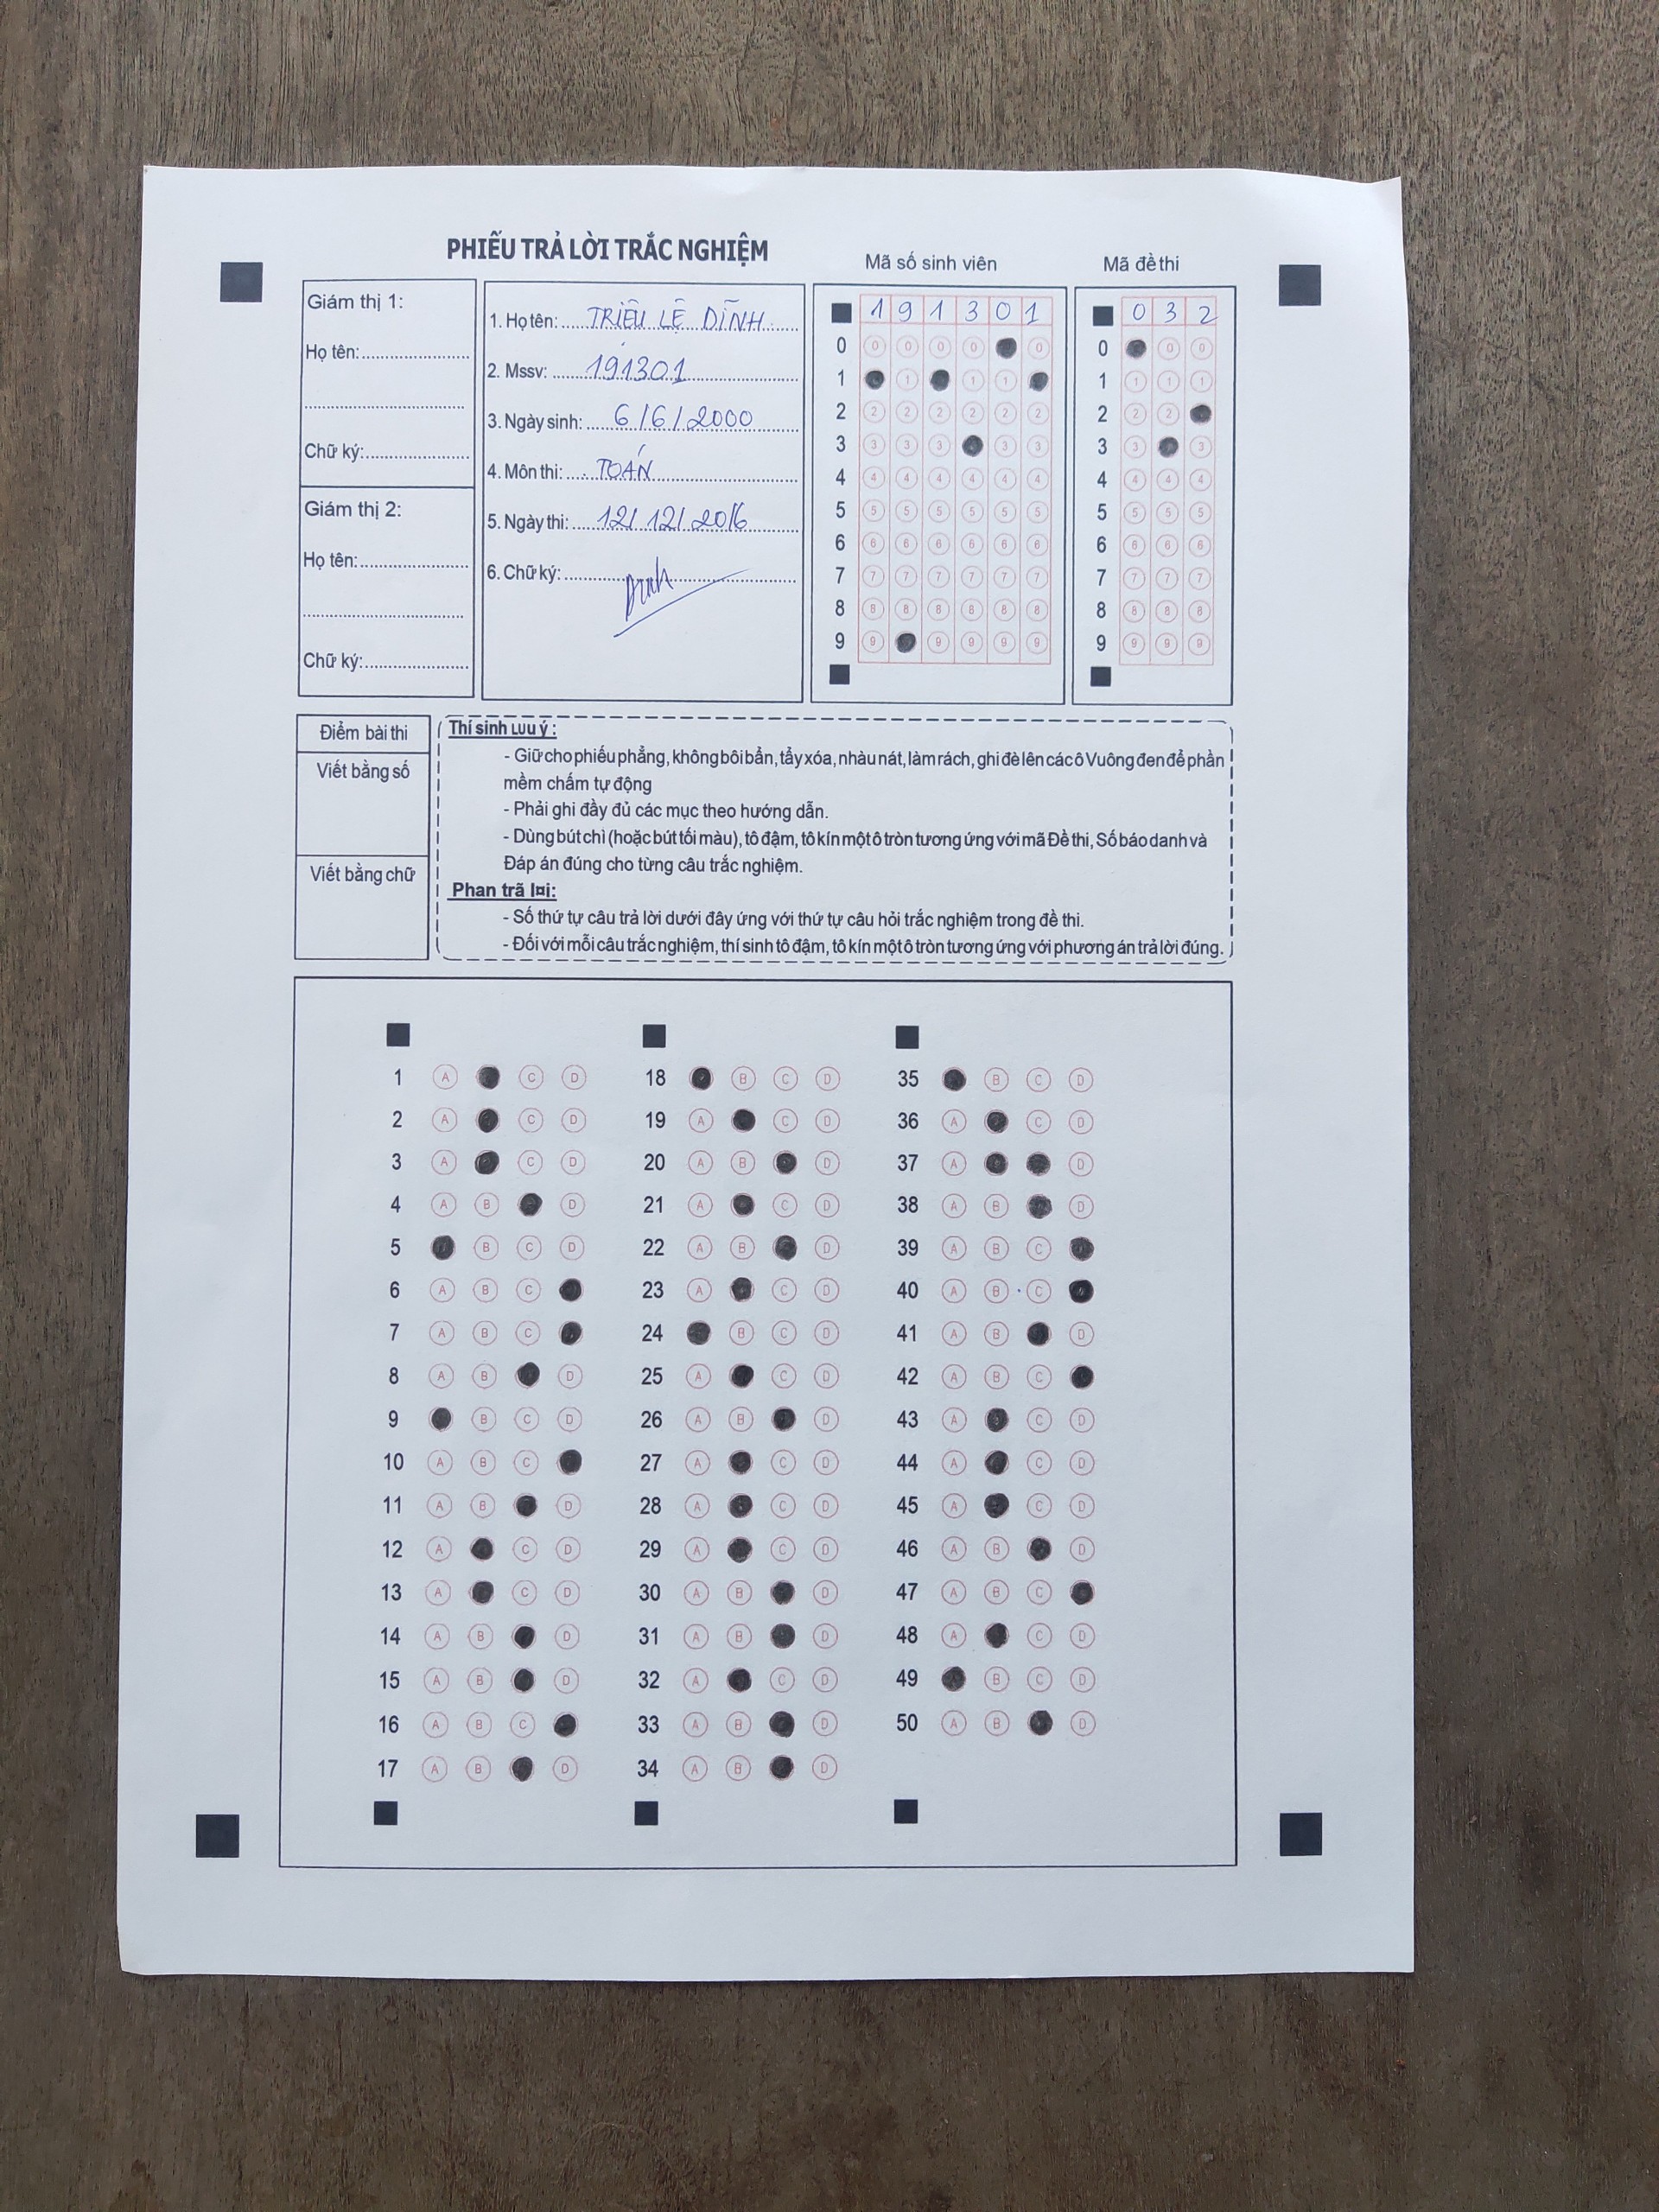 PHIẾU TRẢ LỜI TRẮC NGHIỆM
Mã số sinh viên
Mã đề thi
Giám thị 1:
Họ tên:
Chữ ký:
Giám thị 2:
Họ tên:
Chữ ký:
1. Họ tên: TRIỆU LỆ DĨNH
2. Mssv: 191301
3. Ngày sinh: 6/6/2000
4. Môn thi: TOÁN
5. Ngày thi: 12/12/2016
6. Chữ ký:
1 9 1 3 0 1
0 0 0 0 0
1 1 1 1
2 2 2 2 2 2 2
3 3 3 3 3 3
4 4 4 4 4 4 4
5 5 5 5 5 5 5
6 6 6 6 6 6 6
7 7 7 7 7 7 7
8 8 8 8 8 8 8
9 9 9 9 9 9
0 3 2
0 0 0
1 1 1 1
2 2 2
3 3 3
4 4 4 4
5 5 5 5
6 6 6 6
7 7 7 7
8 8 8 8
9 9 9 9
Điểm bài thi
Viết bằng số
Viết bằng chữ
Thí sinh Lưu ý :
- Giữ cho phiếu phẳng, không bôi bẩn, tẩy xóa, nhàu nát, làm rách, ghi đè lên các ô Vuông đen để phần
mềm chấm tự động
- Phải ghi đầy đủ các mục theo hướng dẫn.
- Dùng bút chì (hoặc bút tối màu), tô đậm, tô kín một ô tròn tương ứng với mã Đề thi, Số báo danh và
Đáp án đúng cho từng câu trắc nghiệm.
Phan trã l¤i:
- Số thứ tự câu trả lời dưới đây ứng với thứ tự câu hỏi trắc nghiệm trong đề thi.
- Đối với mỗi câu trắc nghiệm, thí sinh tô đậm, tô kín một ô tròn tương ứng với phương án trả lời đúng.
1 A C D
2 A C D
3 A C D
4 A B D
5 B C D
6 A B C
7 A B C
8 A B D
9 B C D
10 A B C
11 A B D
12 A C D
13 A C D
14 A B D
15 A B D
16 A B C
17 A B D
18 B C D
19 A C D
20 A B D
21 A C D
22 A B D
23 A C D
24 B C D
25 A C D
26 A B D
27 A C D
28 A C D
29 A C D
30 A B D
31 A B D
32 A C D
33 A B D
34 A B D
35 B C D
36 A C D
37 A D
38 A B D
39 A B C
40 A B C
41 A B D
42 A B C
43 A C D
44 A C D
45 A C D
46 A B D
47 A B C
48 A C D
49 B C D
50 A B D